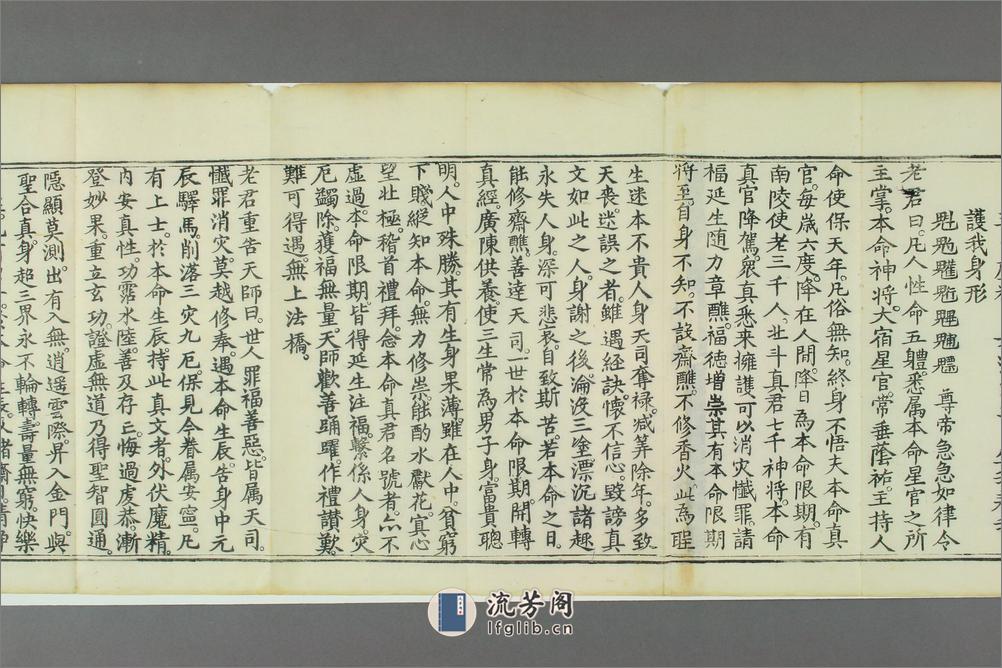 護我身形
魁 尊帝急急如律令
老君曰。凡人性命五體。悉属本命星官之所
主掌。本命神將。大宿星官。常垂蔭祐。主持人
命使保天年。凡俗無知。終身不悟夫本命真
官。每歳六度。降在人間。降日為本命限期。有
南陵使者三千人。北斗真君七千神將。本命
真官降駕。衆真悉来擁護可以消灾懺罪。請
福延生随力章醮。福徳增崇其有本命限期
將至。自身不知。不設齋醮。不修香火。此為
生迷本不貴人身天司奪禄。减筭除年。多致
天喪。迷誤之者。雖遇經訣。懷不信心。毀謗真
文如此之人。身謝之後。淪没三塗漂沉諸趣
永失人身。深可悲哀。自致斯苦。若本命之日。
能修齋醮。善達天司。一世於本命限期。開轉
真經。廣陳供養。使三生常為男子身。富貴聰
明。人中殊勝。其有生身果薄。雖在人中。貧窮
下賤。縦知本命。無力修崇。能酌水獻花。寘心
望北極。稽首禮拜。念本命真君名號者。亦不
虚過。本命限期。皆得延生注福。繫係人身。灾
厄蠲除。獲福無量。天師歡善踊躍。作禮讃歎。
難可得遇。無上法橋。
老君重告天師曰。世人罪福善惡。皆属天司。
懺罪消灾。莫越修奉。遇本命生辰。告身中元
辰驛馬。削落三灾九厄。保見今眷属安寧。凡
有上士。於本命生辰持此真文者。外伏魔精。
內安真性。功霑水陸。善及存亡。悔過虔恭。漸
登妙果。重立玄功。證虚無道。乃得聖智圓通。
隠顯莫測。出有入無。逍遥雲際。昇入金門。與
聖合真。身超三界。永不輪轉。壽量無窮。快樂
流芳阁
lfglib.cn